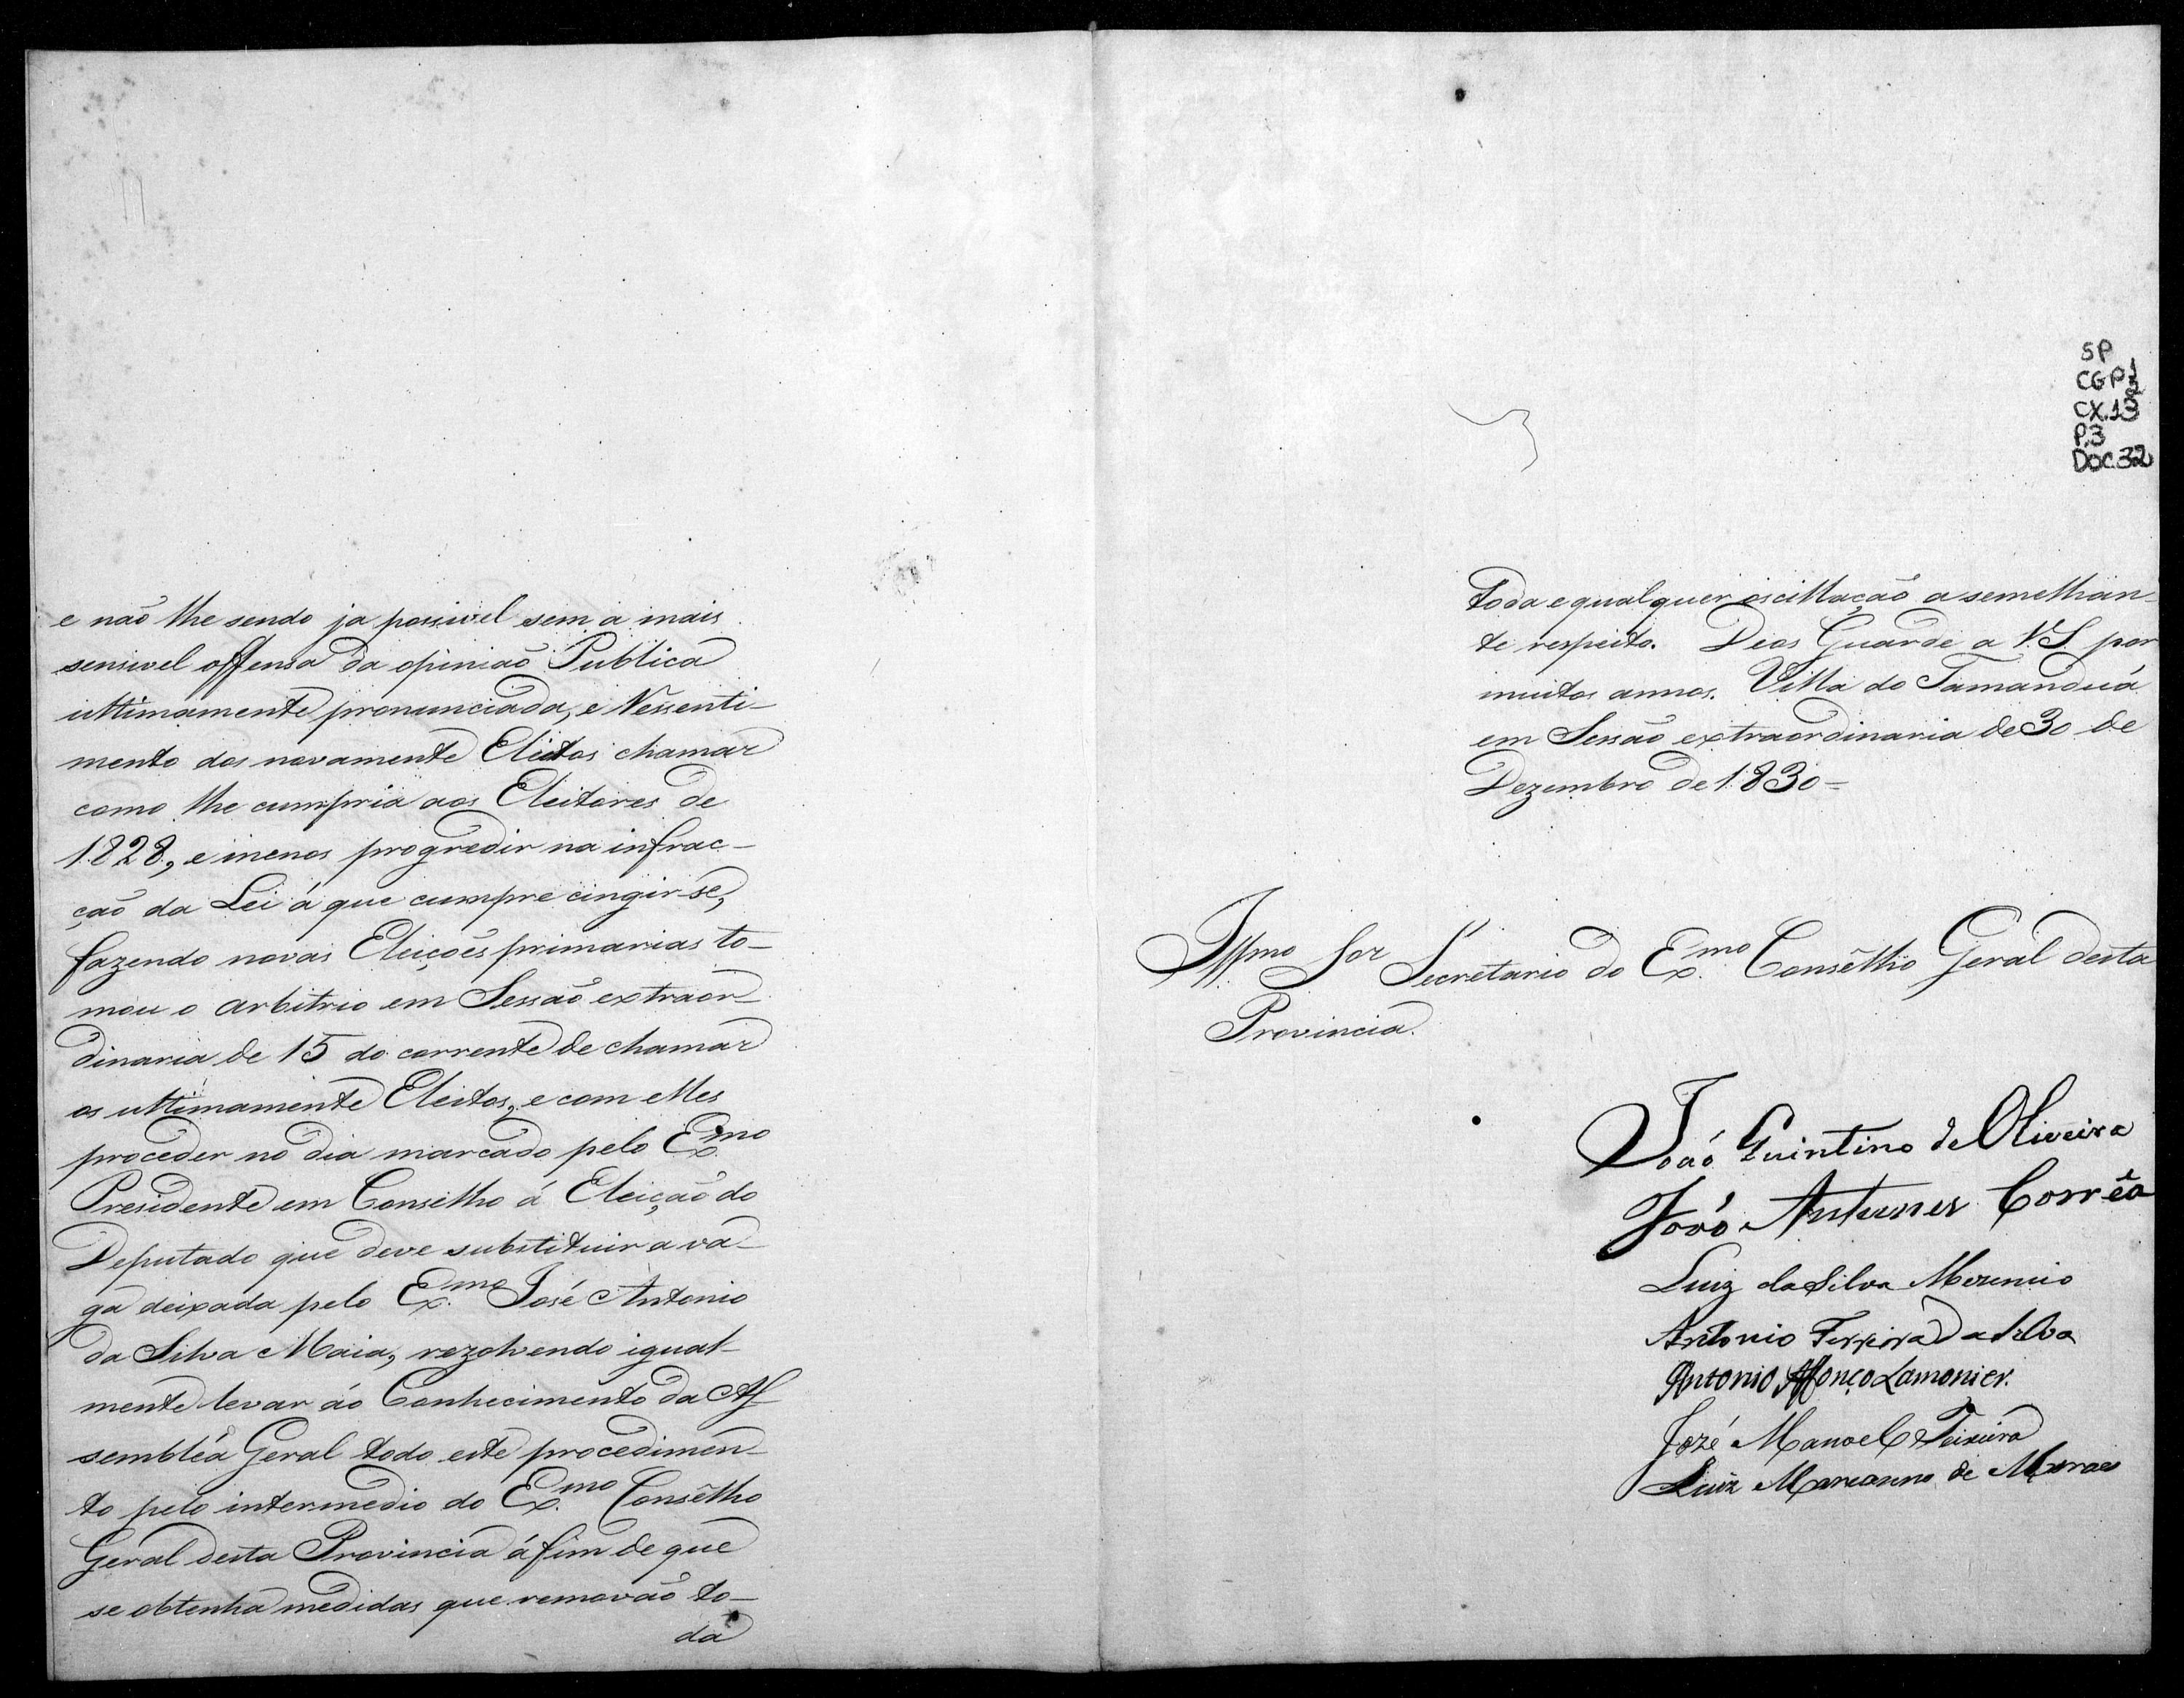 e não lhe sendo ja possivel sem a mais
sensivel offensa da opinião Publica
ultimamente pronunciada, e Ressenti-
mento dos novamente Eleitos chamar
como lhe cumpria aos Eleitores de
1828, e menos progredir na infrac-
ção da Lei á que cumpre cingir-se,
fazendo novas Eleições primarias to-
mou o arbitrio em Sessão extraor-
dinaria de 15 do corrente de chamar
os ultimamente Eleitos, e com elles
proceder no dia marcado pelo Ex.mo
Presidente em Conselho á Eleição do
Deputado que deve substituir a va-
ga deixada pelo Ex.mo José Antonio
da Silva Maia, rezolvendo igual-
mente levar áo Conhecimento da As-
sembléa Geral todo este procedimen-
to pelo intermedio do Ex.mo Consêlho
Geral desta Provincia á fim de que
se obtenha medidas que removão to-
da
SP
CGP1
CX.13
P.3
DOC.32
toda e qualquer oscillação a semelhan-
te respeito. Deos Guarde a V.S. por
muitos annos. Villa do Tamanduá
em Sessão extraordinaria de 30 de
Dezembro de 1830=
Illmo Sor Secretario do Ex.mo Consêlho Geral desta
Provincia.
João Quintino de Oliveira
João Antunes Corrêa
Luiz da Silva
Antonio Ferreira da Silva
Antonio Affonço Lamonier.
Jozé Manoel Teixeira
Luiz Marianno de Moraes